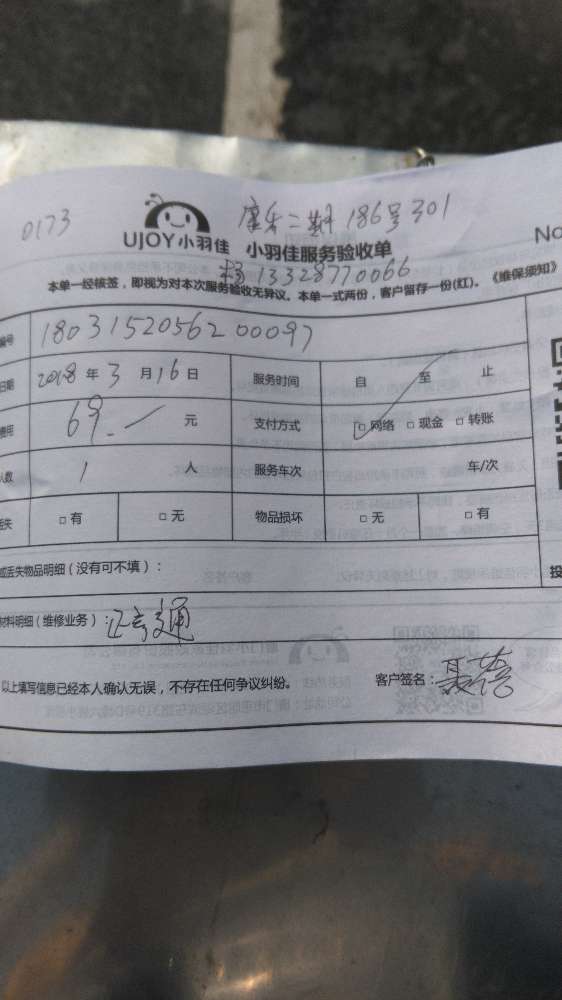 0173
康乐二期186号301
UJOY小羽佳 小羽佳服务验收单
No
杨13328770066
本单一经核签，即视为对本次服务验收无异议。本单一式两份，客户留存一份(红)。《维保须知》
编号 1803152056200097
日期 2018 年 3 月 16 日 服务时间 自 至 止
费用 69.— 元 支付方式 □ 网络 □ 现金 □ 转账
人数 1 人 服务车次 车/次
丢失 □ 有 □ 无 物品损坏 □ 无 □ 有
或丢失物品明细（没有可不填）：
投
材料明细（维修业务）：
以上填写信息已经本人确认无误，不存在任何争议纠纷。 客户签名：